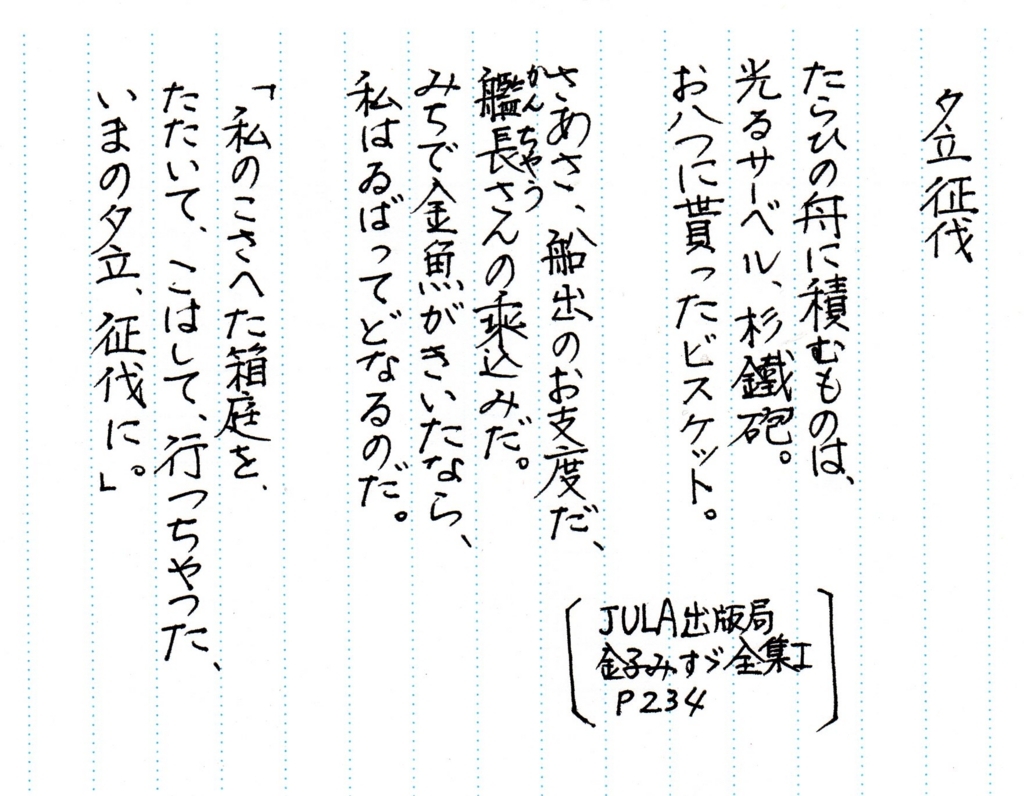 夕立征伐
たらひの舟に積むものは、
光るサーベル、杉鐵砲。
お八つに貰ったビスケット。
さあさ、船出のお支度だ、
艦長さんの乘込みだ。
かんちやう
みちで金魚がきいたなら、
私はゐばってどなるのだ。
「私のこさへた箱庭を、
たたいて、こはして、行つちやつた、
いまの夕立、征伐に。」
JULA出版局
金子みすゞ全集I
P234